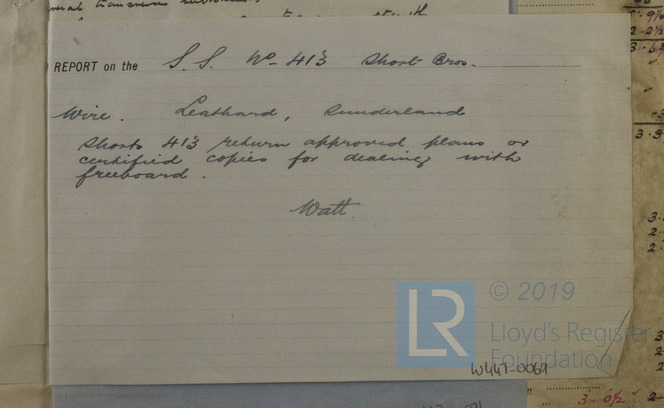 REPORT on the S.S. No 413 Short Bros.
Wire. Leathard, Sunderland
Shorts 413 return approved plans or
certified copies for dealing with
freeboard.
Watt.
© 2019
LR Lloyd's Register
Foundation
W447-0069